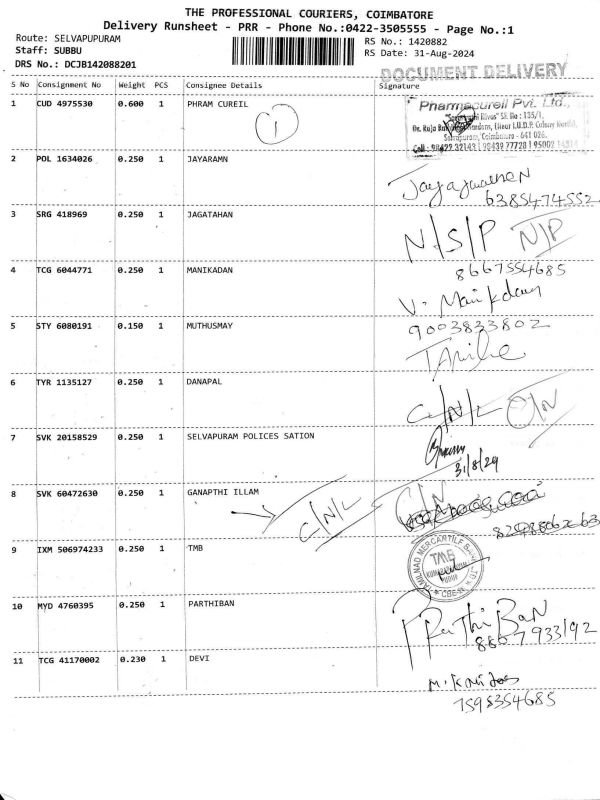 THE PROFESSIONAL COURIERS, COIMBATORE
Delivery Runsheet - PRR - Phone No.:0422-3505555 - Page No.:1
Route: SELVAPUPURAM
Staff: SUBBU
DRS No.: DCJB142088201
RS No.: 1420882
RS Date: 31-Aug-2024
DOCUMENT DELIVERY
S No Consignment No Weight PCS Consignee Details Signature
1 CUD 4975530 0.600 1 PHRAM CUREIL
1
Pharmacureil Pvt. Ltd.,
2 POL 1634026 0.250 1 JAYARAMN
6385474552
3 SRG 418969 0.250 1 JAGATAHAN
N/S/P N/P
4 TCG 6044771 0.250 1 MANIKADAN
8667554685
5 STY 6080191 0.150 1 MUTHUSMAY
9003833802
6 TYR 1135127 0.250 1 DANAPAL
C/N/L
7 SVK 20158529 0.250 1 SELVAPURAM POLICES SATION
31/8/24
8 SVK 60472630 0.250 1 GANAPTHI ILLAM
C/N/L C/N
9 IXM 506974233 0.250 1 TMB
TMB
10 MYD 4760395 0.250 1 PARTHIBAN
ParthiBaN
11 TCG 41170002 0.230 1 DEVI
7598354685